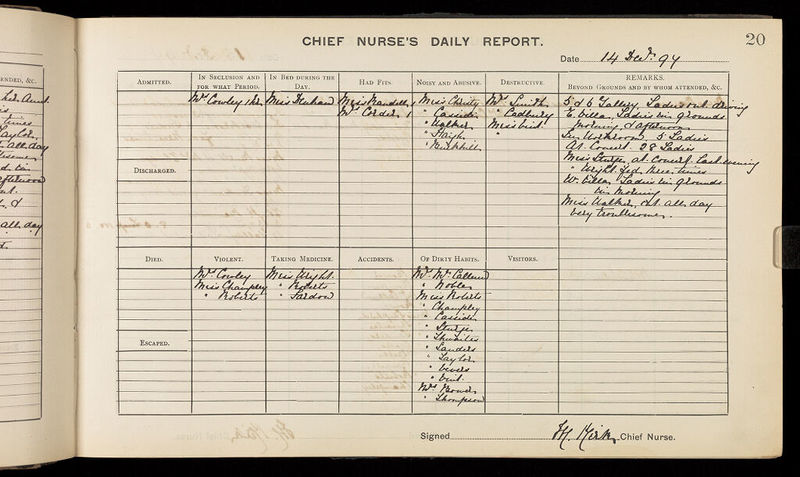 20
CHIEF NURSE'S DAILY REPORT.
Date 14 Decr. 94
ADMITTED.
IN SECLUSION AND FOR WHAT PERIOD.
Mrs Cowley 1 hr
IN BED DURING THE DAY.
Miss Denham
HAD FITS.
Miss Randell 1
Mrs Corder 1
NOISY AND ABUSIVE.
Miss Christy
" Cassidy
" Walker
" Haigh
DESTRUCTIVE.
Mrs Smith
" Cadbury
Miss Vint
REMARKS.
BEYOND GROUNDS AND BY WHOM ATTENDED, &C.
5 & 6 Gallery. Ladies out driving
E. Villa. Ladies in grounds
Morning & afternoon
In Workroom. 5 Ladies
At Concert. 28 Ladies
Miss Sturge at Concert last evening
" Wright fed three times
W. Villa. Ladies in grounds
in Morning
Miss Walker, out all day
very troublesome.
DISCHARGED.
DIED.
VIOLENT.
Mrs Cowley
Miss Champley
" Roberts
TAKING MEDICINE.
Miss Wright
" Roberts
" Jardow
ACCIDENTS.
OF DIRTY HABITS.
Mrs McCallum
" Noble
Miss Roberts
" Champley
" Cassidy
" Sturge
" Thwaites
" Sanders
" Taylor
" Vevers
" Vint
Mrs Bond
" Thompson
VISITORS.
ESCAPED.
Signed
Chief Nurse.
ENDED, &C.
times
Taylor
all day
afternoon
all day